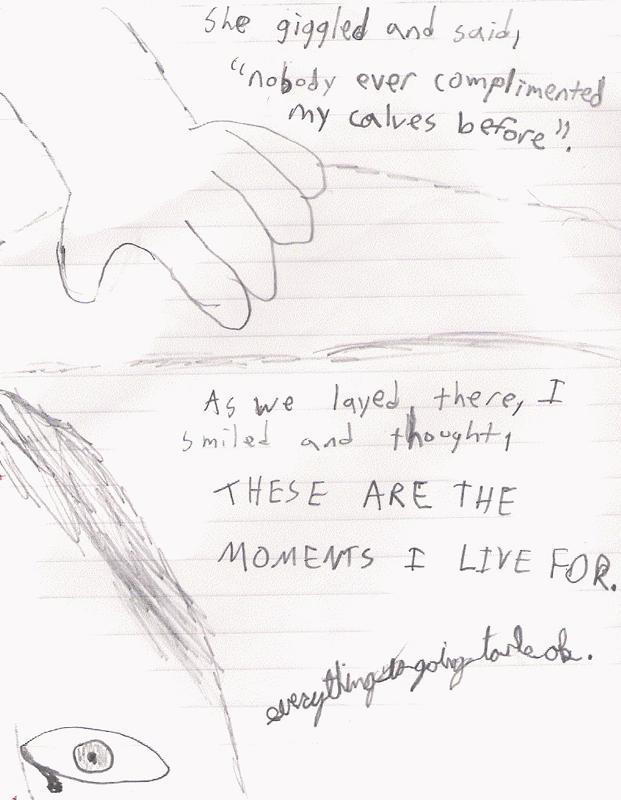 She giggled and said,
"nobody ever complimented
my calves before".
As we layed, there, I
smiled and thought,
THESE ARE THE
MOMENTS I LIVE FOR.
everything is going to be ok.